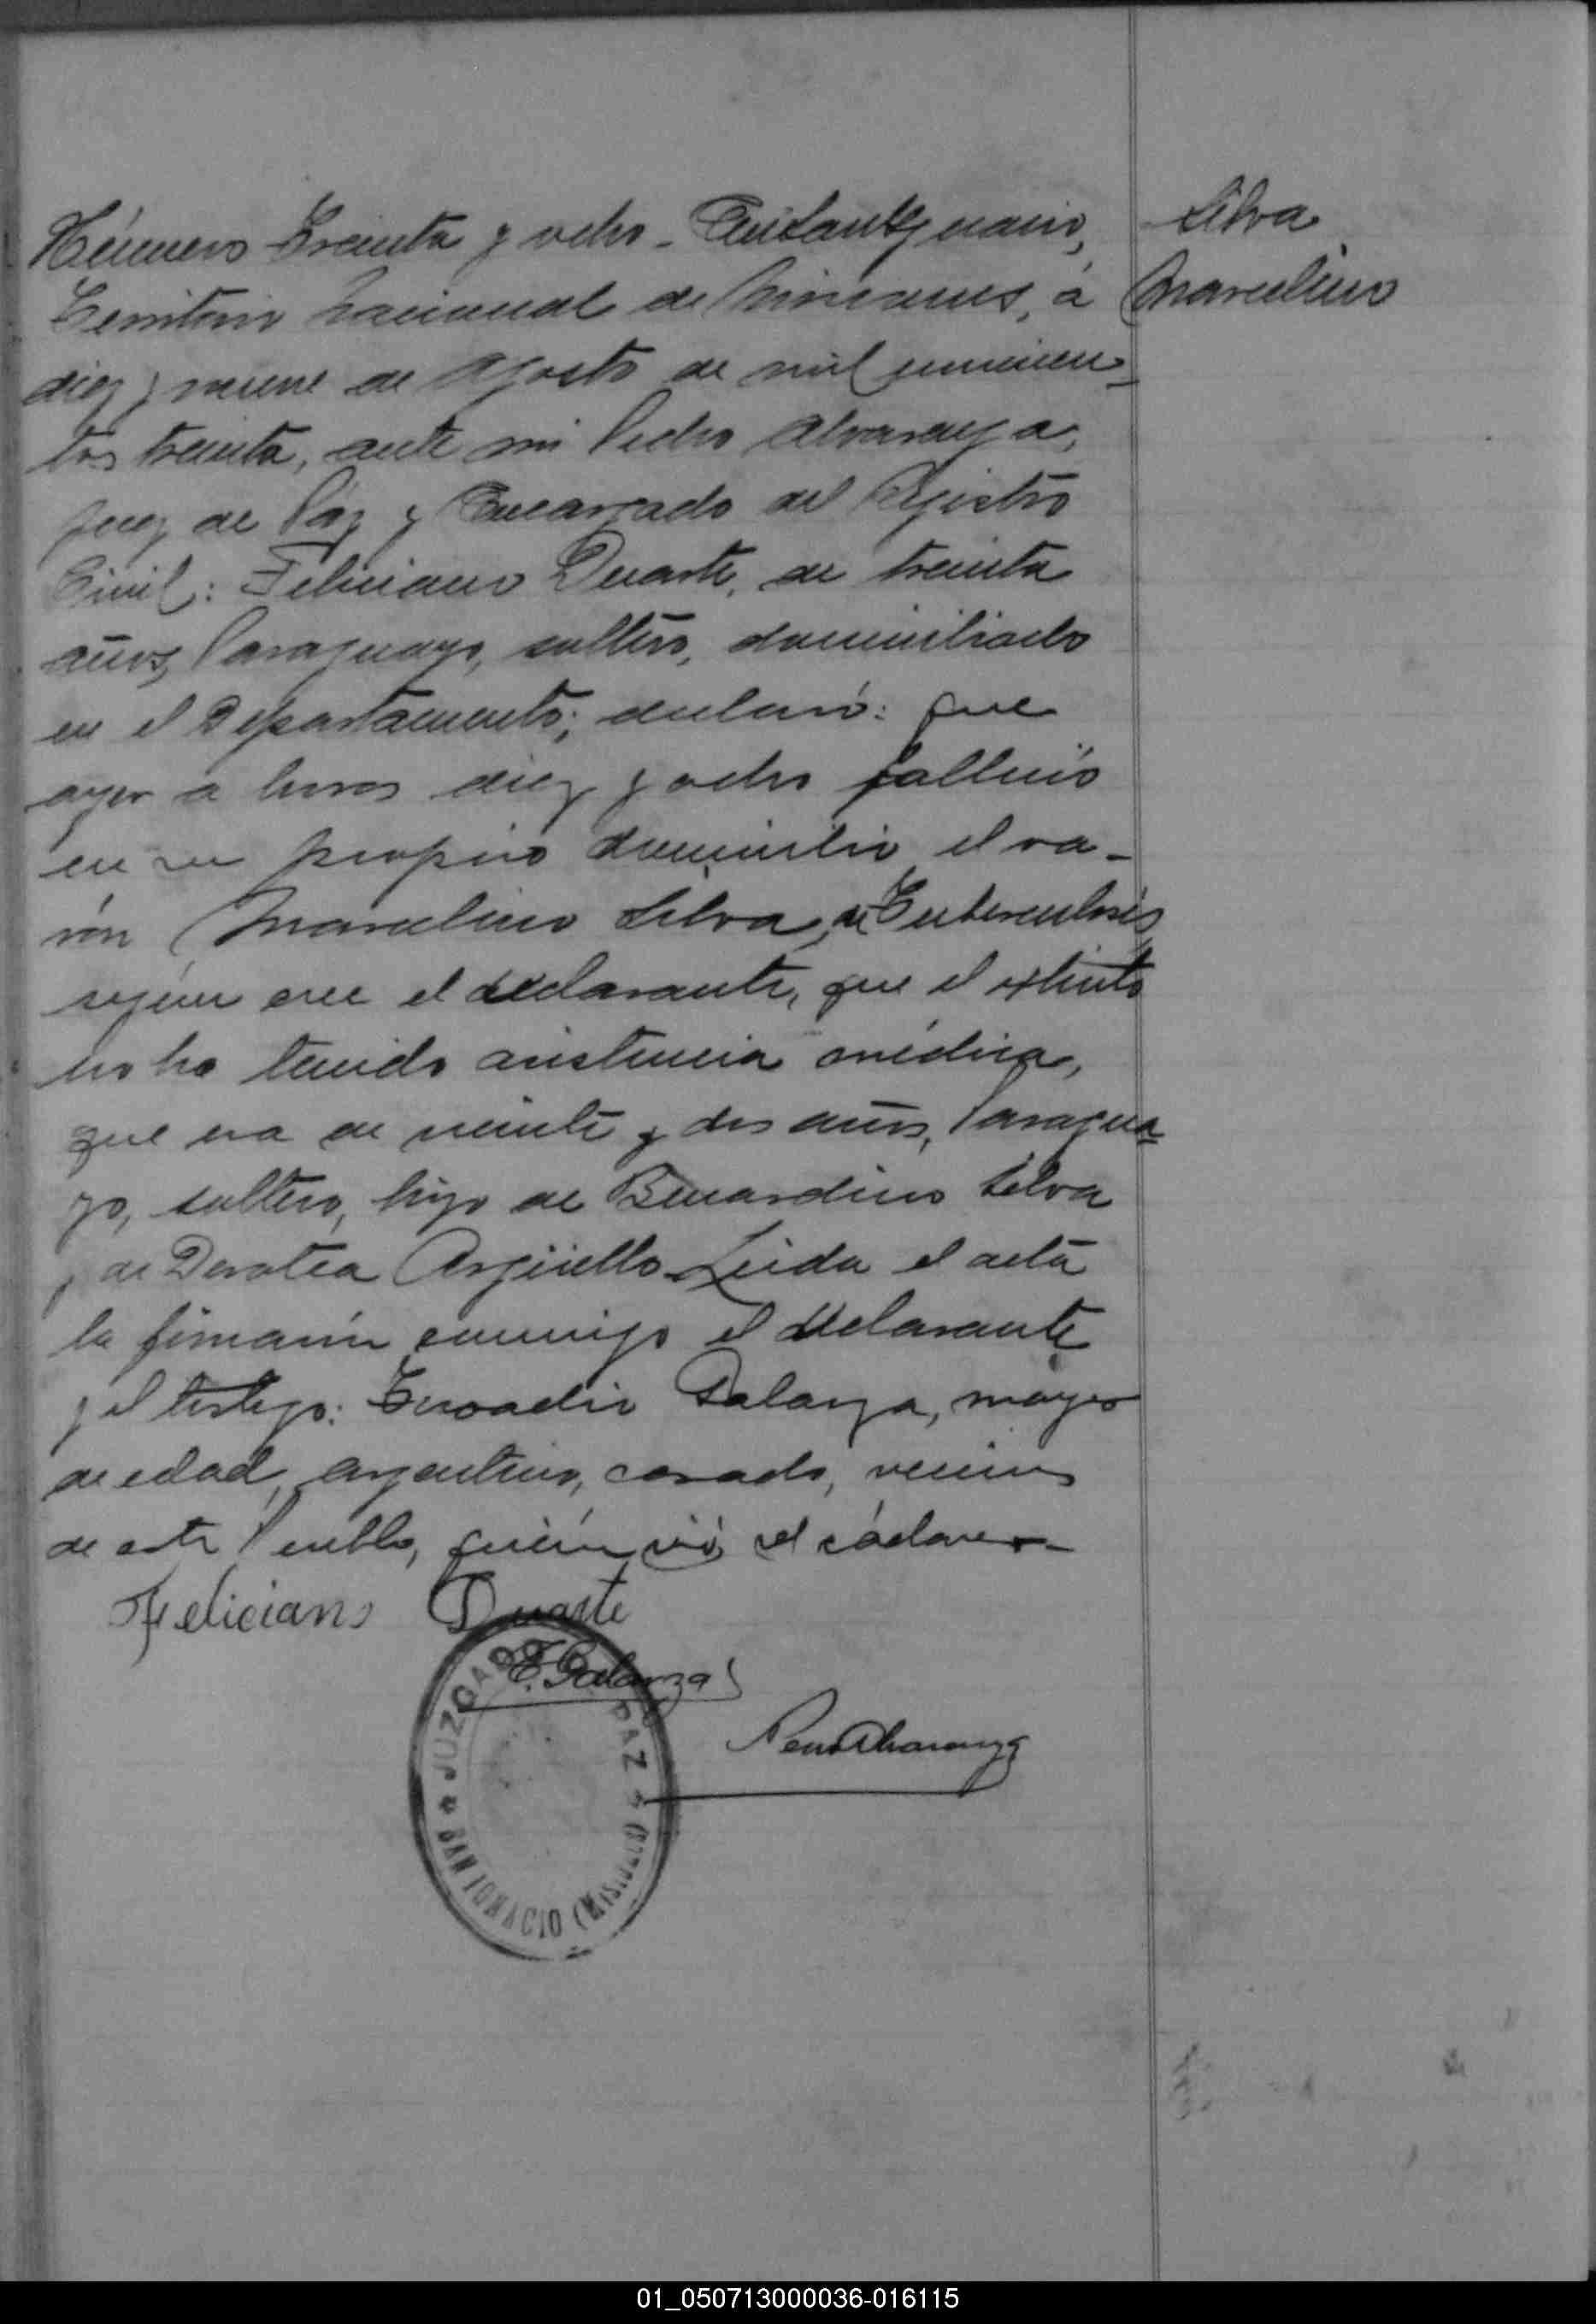 Número Treinta y ocho - En San Ignacio,
Territorio Nacional de Misiones, á
diez y nueve de Agosto de mil novecien-
tos treinta, ante mi Pedro Alvarenga,
Juez de Páz y Encargado del Registro
Civil: Feliciano Duarte, de treinta
años, Paraguayo, soltero, domiciliado
en el Departamento; declaró: que
ayer a horas diez y ocho falleció
en su propio domicilio el va-
rón Marcelino Silva, de Tuberculosis
según cree el declarante, que el extinto
no ha tenido asistencia médica,
que era de veinte y dos años, Paragua-
yo, soltero, hijo de Bernardino Silva
y de Dorotea Argüello - Leida el acta
la firmarón conmigo el declarante
y el testigo: Galarza, mayor
de edad, argentino, casado, vecino
de este Pueblo, quién vió el cádaver -
Silva
Marcelino
Feliciano Duarte
E. Galarza
Pedro Alvarenga
JUZGADO DE PAZ
SAN IGNACIO (MISIONES)
01_050713000036-016115